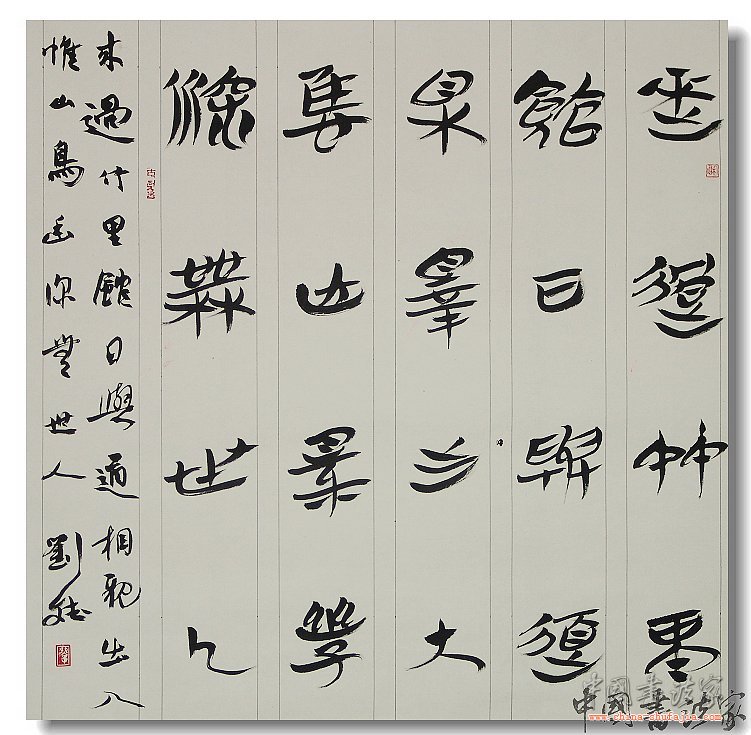 來過竹里
館日與道
相親出入
隹山鳥幽
深無世人
來過竹里館日與道相親出入
惟山鳥幽深無世人 劉
中國書法家
www.china-shufajia.com